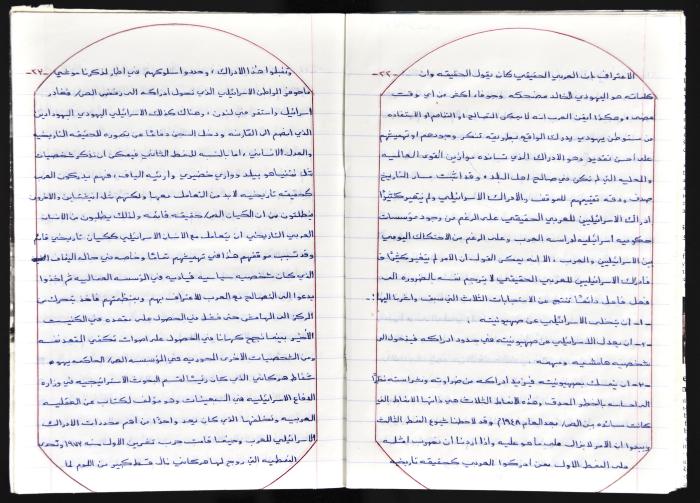 -٢٣-
الاعتراف بان العربي الحقيقي كان يقول الحقيقه وان
كلماته هو اليهودي الخالد مضحكه وجوفاء اكثر من أي وقت
مضى، وهكذا ايقن العرب انه لا يمكن التصالح او التفاهم او الاستفاده
من مستوطن يهودي يدرك الواقع بطريقه تنكر وجودهم او تهميشهم
على أحسن تقدير وهو الادراك الذي تسانده موازين القوى العالميه
والمحليه التي لم تكن في صالح اهل البلد، وقد اثبت مسار التاريخ
صدق ودقه تقييمهم للموقف والادراك الاسرائيلي ولم يتغير كثيرًا
ادراك الاسرائيليين للعربي الحقيقي على الرغم من وجود مؤسسات
حكوميه اسرائيليه لدراسه العرب وعلى الرغم من الاحتكاك اليومي
بين الاسرائيليين والعرب، الا انه يمكن القول ان الامر لم يتغير كثيرًا
فادراك الاسرائيليين للعربي الحقيقي لا يترجم نفسه بالضروره الى
فعل فاعل دائمًا تنتج عن الاستجابات الثلاث التي سبق واشرنا اليها:-
-١- ان يتخلى الاسرائيلي عن صهيونيته
-٢- ان يعدل الاسرائيلي من صهيونيته في حدود ادراكه فيتحول الى
شخصيه هامشيه ومهمشه
-٣- ان يتمسك بصهيونيته فيزيد ادراكه من ضراوته وشراسته نظرًا
لاحساسه بالخطر المحدق، وهذه الأنماط الثلاث هي ذاتها الانماط التي
كانت سائده بين الص/ بعد العام ١٩٤٨م وقد لاحظنا شيوع النمط الثالث
ويبدوا ان الامر لا يزال على ما هو عليه واذا اردنا ان نضرب امثله
على النمط الاول ممن ادركوا العربي كحقيقه تاريخيه
-٢٤-
وتقبلوا هذا الادراك، وحددوا سلوكهم في اطاره لذكرنا
المواطن الاسرائيلي الذي تحول ادراكه الى رفض الص/ فغادر
اسرائيل واستقر في لندن، وهناك كذلك الاسرائيلي اليهودي
الذي انضم الى ودخل السجن دفاعًا عن تصوره للحقيقه التاريخيه
والعدل الانساني، اما بالنسبه للنمط الثاني فيمكن ان نذكر شخصيات
مثل بيليد ووأري الياف، فهم يدركون العرب
كحقيقه تاريخيه لابد من التعامل معها ولكنهم مثل والاخرين
ينطلقون من ان الكيان الص/ حقيقه قائمه ولذلك يطلبون من الانسان
العربي التاريخي ان يتعامل مع الانسان الاسرائيلي ككيان تاريخي قائم
وقد تسبب موقفهم هذا في تهميشهم تمامًا وخاصه في حاله الياف
الذي كان شخصيه سياسيه قياديه في المؤسسه العماليه ثم اخذوا
يدعوا الى التصالح مع العرب للاعتراف بهم وبمنظمتهم فأخذ يتحرك من
المركز الى الهامش حتى فشل في الحصول على مقعده في الكنيست
الأخير بينما نجح كهانا في الحصول على اصوات تكفي لمقعد نفسه
ومن الشخصيات الأخرى المحوريه في المؤسسه الص/ الحاكمه
هركابي الذي كان رئيسًا لقسم البحوث الاستراتيجيه في وزاره
الدفاع الاسرائيليه في السبعينات وهو مؤلف لكتاب عن العقليه
العربيه وتخلفها الذي كان يعد واحدًا من اهم محددات الادراك
الاسرائيلي للعرب وحينما قامت حرب تشرين الاول سنه ١٩٧٣
النمطيه التي روج لها هركابي نال قسط كبير من اللوم لما